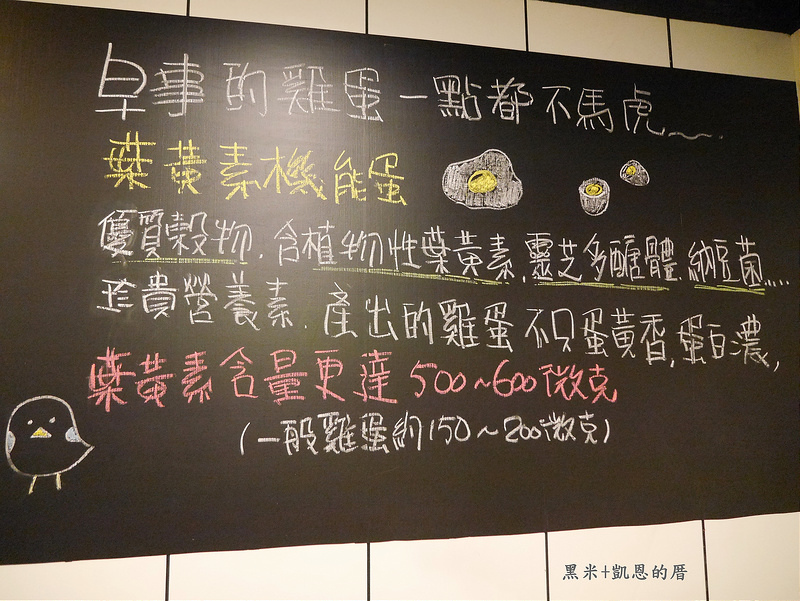 早事的雞蛋一點都不馬虎~~..
葉黃素機能蛋
優質穀物.含植物性葉黃素,靈芝多醣體,納豆菌....
珍貴營養素.產出的雞蛋不只蛋黃香,蛋白濃,
葉黃素含量更達500~600微克,
(一般雞蛋約150~200微克)
黑米+凱恩的厝